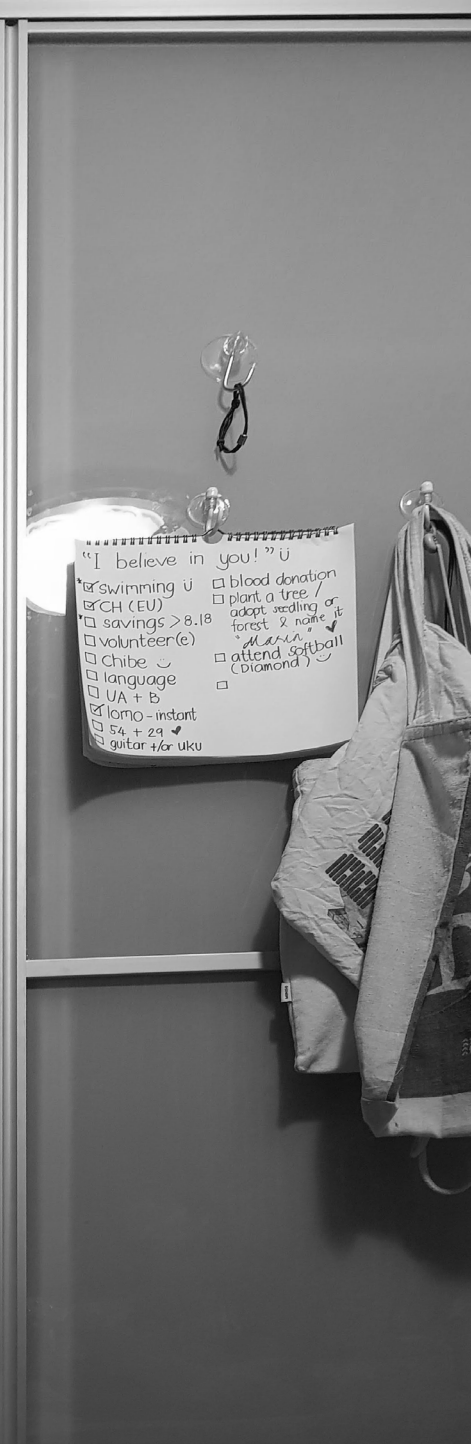 "I believe in you!" ü
*☑ swimming ü
☑ CH (EU)
*☐ savings > 8.18
☐ volunteer(e)
☐ Chibe ☺
☐ language
☐ UA + B
☑ lomo-instant
☐ 54 + 29 ♥
☐ guitar +/or uku
☐ blood donation
☐ plant a tree /
adopt seedling or
forest & name it
"Marin" ♥
☐ attend softball
(Diamond) ☺
☐